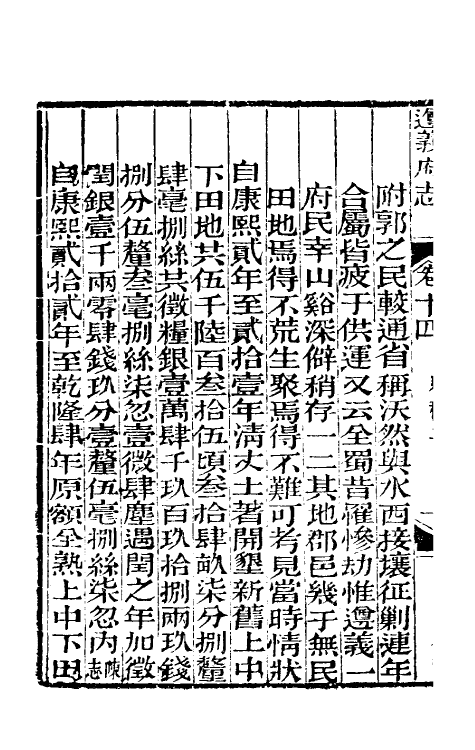 遵義府志 卷十四
附郭之民較通省稱沃然與水西接壤征剿連年
合屬皆疲于供運又云全蜀昔罹慘劫惟遵義一
府民幸山谿深僻稍存一二其地郡邑幾于無民
田地焉得不荒生聚焉得不難可考見當時情狀
自康熙貳年至貳拾壹年淸丈土著開墾新舊上中
下田地共伍千陸百叁拾伍頃叁拾肆畝柒分捌釐
肆毫捌絲共徵糧銀壹萬肆千玖百玖拾捌兩玖錢
捌分伍釐叁毫捌絲柒忽壹微肆塵遇閏之年加徵
閏銀壹千兩零肆錢玖分壹釐伍毫捌絲柒忽內陳志
自康熙貳拾貳年至乾隆肆年原額全熟上中下田